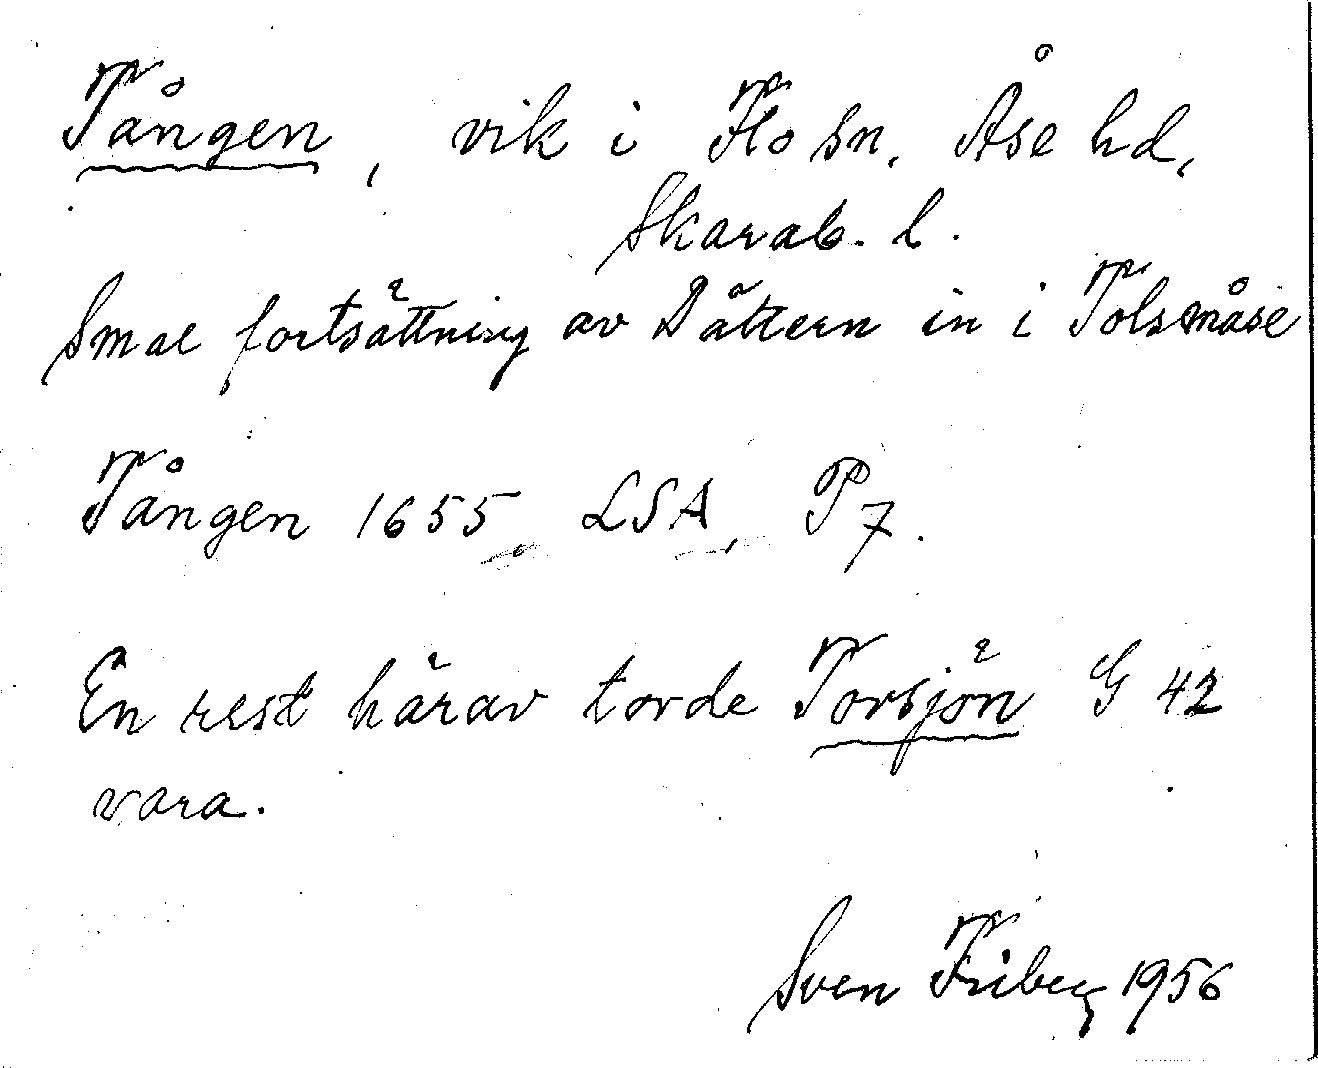 Tången, vik i Flo sn, Åse hd,
Skarab. l.
Smal fortsättning av Dättern in i Tolsmåse
Tången 1655 LSA, P 7.
En rest härav torde Torsjön G 42
vara.
Sven Friberg 1956